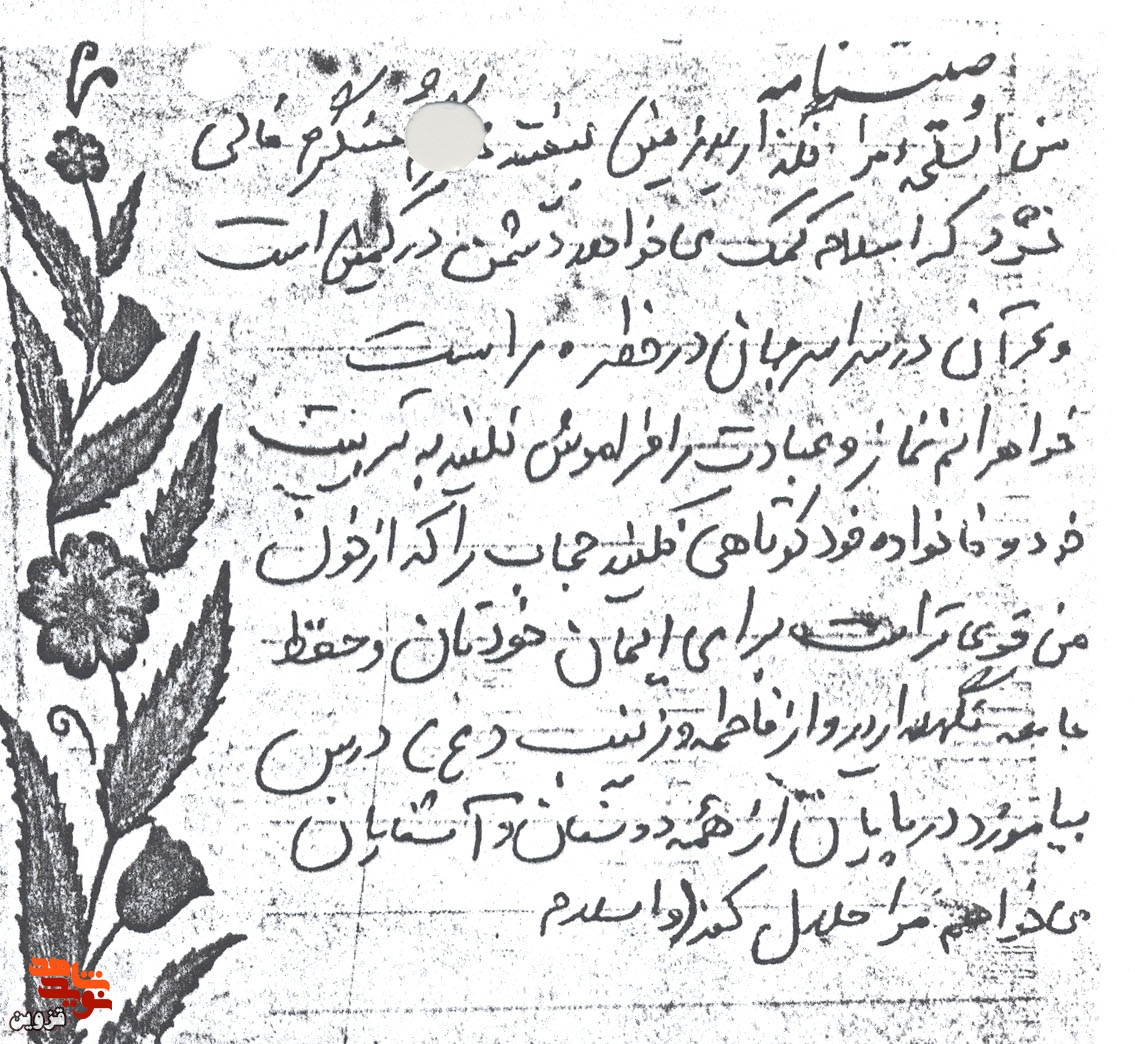 وصیتنامه
من اسلحه مرا نگذارید زمین بیفتد سنگرم خالی
نشود که اسلام کمک می‌خواهد دشمن در کمین است
و قرآن در سراسر جهان در خطره مر است
خواهرانم نماز و عبادت را فراموش نکنید به تربیت
خود و خانواده خود کوتاهی نکنید حجاب را که از خون
من قوی تر است برای ایمان خودتان و حفظ
جامعه نگهدارید و از فاطمه و زینب (ع) درس
بیاموزد در پایان از همه دوستان و آشنایان
می‌خواهم مرا حلال کوند (واسلام
شاهد
نوید
قزوین